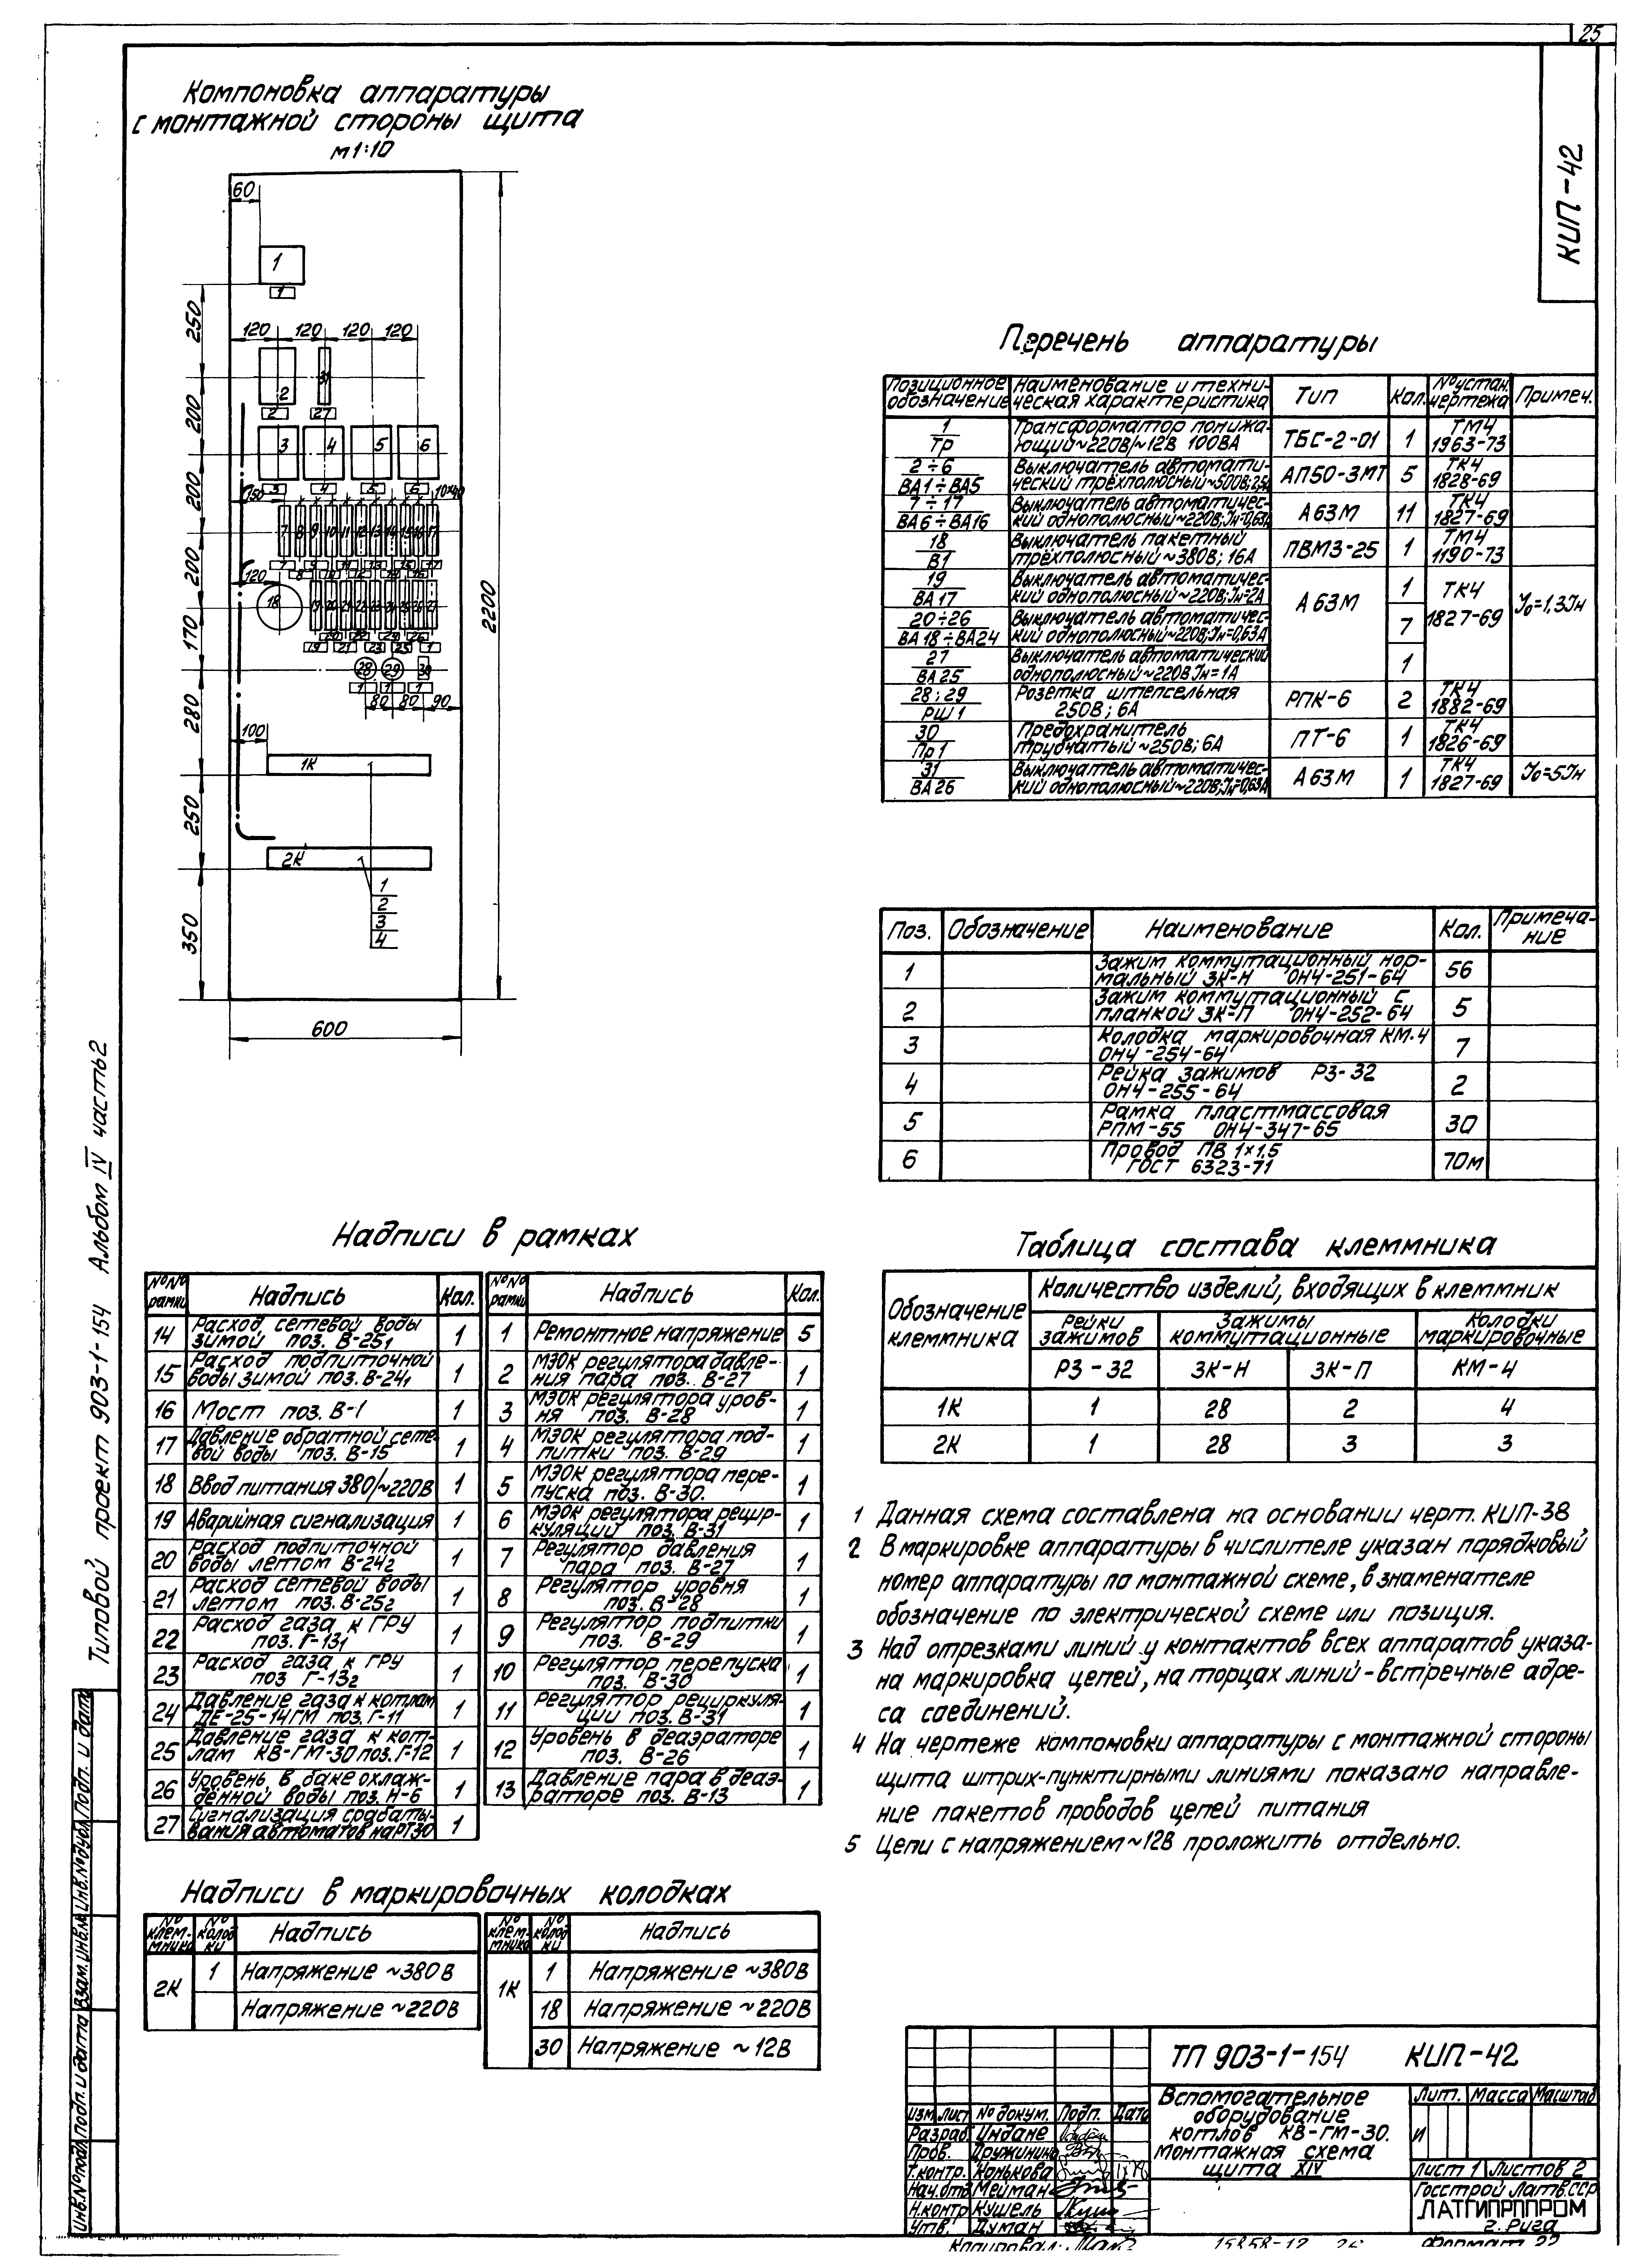 25
КИП-42
Компоновка аппаратуры
с монтажной стороны щита
М1:10
60
1
1
250
120 120 120 120
2 31
2 27
200
3 4 5 6
3 4 5 6
200
150 10×40
7 8 9 10 11 12 13 14 15 16 17
200
120
18
19 20 21 22 23 24 25 26 27
170
28 29 30
1 1 1
80 80 90
280
100
1К
250
2К
1
2
3
4
350
2200
600
Перечень аппаратуры
Позиционное обозначение | Наименование и техническая характеристика | Тип | Кол. | № устан. чертежа | Примеч.
1/ТР | Трансформатор понижа-
ющий ~220В/~12В 100ВА | ТБС-2-01 | 1 | ТМЧ 1963-73
2÷6/ВА1÷ВА5 | Выключатель автомати-
ческий трёхполюсный ~500В; 2,5А | АП50-3МТ | 5 | ТКЧ 1828-69
7÷17/ВА6÷ВА16 | Выключатель автоматичес-
кий однополюсный ~220В; Iн=0,63А | А63М | 11 | ТКЧ 1827-69
18/В1 | Выключатель пакетный
трёхполюсный ~380В; 16А | ПВМ3-25 | 1 | ТМЧ 1190-73
19/ВА17 | Выключатель автоматичес-
кий однополюсный ~220В; Iн=2А | А63М | 1 | ТКЧ 1827-69 | Iо=1,3Iн
20÷26/ВА18÷ВА24 | Выключатель автоматичес-
кий однополюсный ~220В; Iн=0,63А | 7
27/ВА25 | Выключатель автоматический
однополюсный ~220В Iн=1А | 1
28; 29/РШ1 | Розетка штепсельная
250В; 6А | РПК-6 | 2 | ТКЧ 1882-69
30/Пр1 | Предохранитель
трубчатый ~250В; 6А | ПТ-6 | 1 | ТКЧ 1826-69
31/ВА26 | Выключатель автоматичес-
кий однополюсный ~220В; Iн=0,63А | А63М | 1 | ТКЧ 1827-69 | Iо=5Iн
Поз. | Обозначение | Наименование | Кол. | Примеча-
ние
1 | Зажим коммутационный нор-
мальный ЗК-Н ОН4-251-64 | 56
2 | Зажим коммутационный с
планкой ЗК-П ОН4-252-64 | 5
3 | Колодка маркировочная КМ-4
ОН4-254-64 | 7
4 | Рейка зажимов РЗ-32
ОН4-255-64 | 2
5 | Рамка пластмассовая
РПМ-55 ОН4-347-65 | 30
6 | Провод ПВ 1×1,5
ГОСТ 6323-71 | 70м
Надписи в рамках
№№ рамки | Надпись | Кол.
14 | Расход сетевой воды
зимой поз. В-25₁ | 1
15 | Расход подпиточной
воды зимой поз. В-24₁ | 1
16 | Мост поз. В-1 | 1
17 | Давление обратной сете-
вой воды поз. В-15 | 1
18 | Ввод питания 380/~220В | 1
19 | Аварийная сигнализация | 1
20 | Расход подпиточной
воды летом В-24₂ | 1
21 | Расход сетевой воды
летом поз. В-25₂ | 1
22 | Расход газа к ГРУ
поз. Г-13₁ | 1
23 | Расход газа к ГРУ
поз Г-13₂ | 1
24 | Давление газа к котлам
ДЕ-25-14ГМ поз. Г-11 | 1
25 | Давление газа к кот-
лам КВ-ГМ-30 поз. Г-12 | 1
26 | Уровень в баке охлаж-
дённой воды поз. Н-6 | 1
27 | Сигнализация срабаты-
вания автоматов на РТЗО | 1
№№ рамки | Надпись | Кол.
1 | Ремонтное напряжение | 5
2 | МЭОК регулятора давле-
ния пара поз. В-27 | 1
3 | МЭОК регулятора уров-
ня поз. В-28 | 1
4 | МЭОК регулятора под-
питки поз. В-29 | 1
5 | МЭОК регулятора пере-
пуска поз. В-30. | 1
6 | МЭОК регулятора рецир-
куляции поз. В-31 | 1
7 | Регулятор давления
пара поз. В-27 | 1
8 | Регулятор уровня
поз. В-28 | 1
9 | Регулятор подпитки
поз. В-29 | 1
10 | Регулятор перепуска
поз. В-30 | 1
11 | Регулятор рециркуля-
ции поз. В-31 | 1
12 | Уровень в деаэраторе
поз. В-26 | 1
13 | Давление пара в деаэ-
раторе поз. В-13 | 1
Таблица состава клеммника
Обозначение клеммника | Количество изделий, входящих в клеммник
Рейки зажимов | Зажимы коммутационные | Колодки маркировочные
РЗ-32 | ЗК-Н | ЗК-П | КМ-4
1К | 1 | 28 | 2 | 4
2К | 1 | 28 | 3 | 3
1 Данная схема составлена на основании черт. КИП-38
2 В маркировке аппаратуры в числителе указан порядковый
номер аппаратуры по монтажной схеме, в знаменателе
обозначение по электрической схеме или позиция.
3 Над отрезками линий у контактов всех аппаратов указа-
на маркировка цепей, на торцах линий-встречные адре-
са соединений.
4 На чертеже компоновки аппаратуры с монтажной стороны
щита штрих-пунктирными линиями показано направле-
ние пакетов проводов цепей питания
5 Цепи с напряжением ~12В проложить отдельно.
Надписи в маркировочных колодках
№ клем-
мника | № колод
ки | Надпись
2К | 1 | Напряжение ~380В
Напряжение ~220В
№ клем-
мника | № колод
ки | Надпись
1К | 1 | Напряжение ~380В
18 | Напряжение ~220В
30 | Напряжение ~12В
Типовой проект 903-1-154 Альбом IV часть 2
Инв.№подл. Подп. и дата Взам. инв.№ Инв.№дубл. Подп. и дата
ТП 903-1-154 КИП-42
Вспомогательное
оборудование
котлов КВ-ГМ-30.
Монтажная схема
щита XIV
Лит. Масса Масштаб
И
Лист 1 Листов 2
Госстрой Латв.ССР
ЛАТГИПРОПРОМ
г. Рига
Изм Лист № докум. Подп. Дата
Разраб. Индане
Пров. Дружинина
Т.контр. Конькова
Нач.отд Мейман
Н.контр Кушель
Утв. Думан
Копировал:
Формат 22